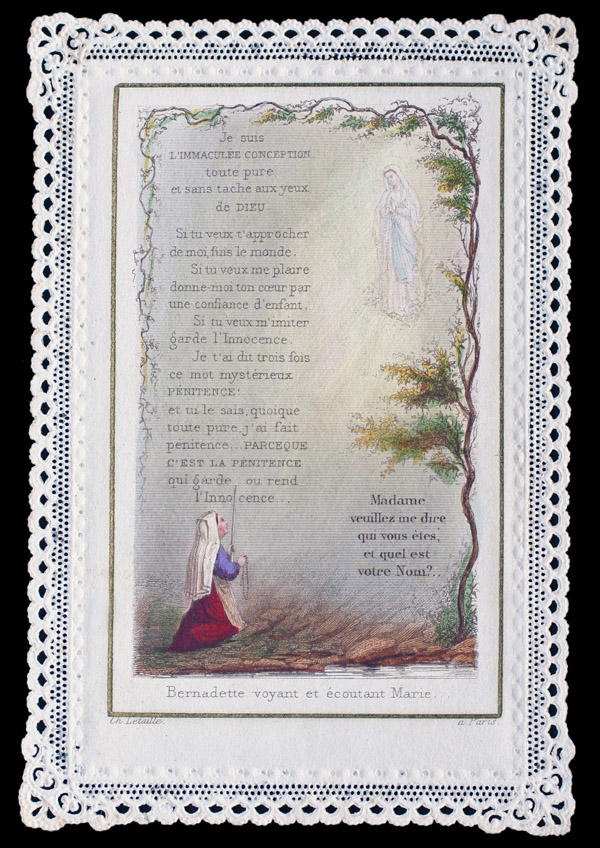 Je suis
L'IMMACULÉE CONCEPTION
toute pure
et sans tache aux yeux
de DIEU
Si tu veux t'approcher
de moi, fuis le monde.
Si tu veux me plaire
donne-moi ton cœur par
une confiance d'enfant,
Si tu veux m'imiter
garde l'Innocence.
Je t'ai dit trois fois
ce mot mystérieux
PÉNITENCE!
et tu le sais, quoique
toute pure, j'ai fait
penitence... PARCEQUE
C'EST LA PÉNITENCE
qui garde ou rend
l'Innocence...
Madame
veuillez me dire
qui vous êtes,
et quel est
votre Nom?..
Bernadette voyant et écoutant Marie...
Ch. Letaille.
a Paris.